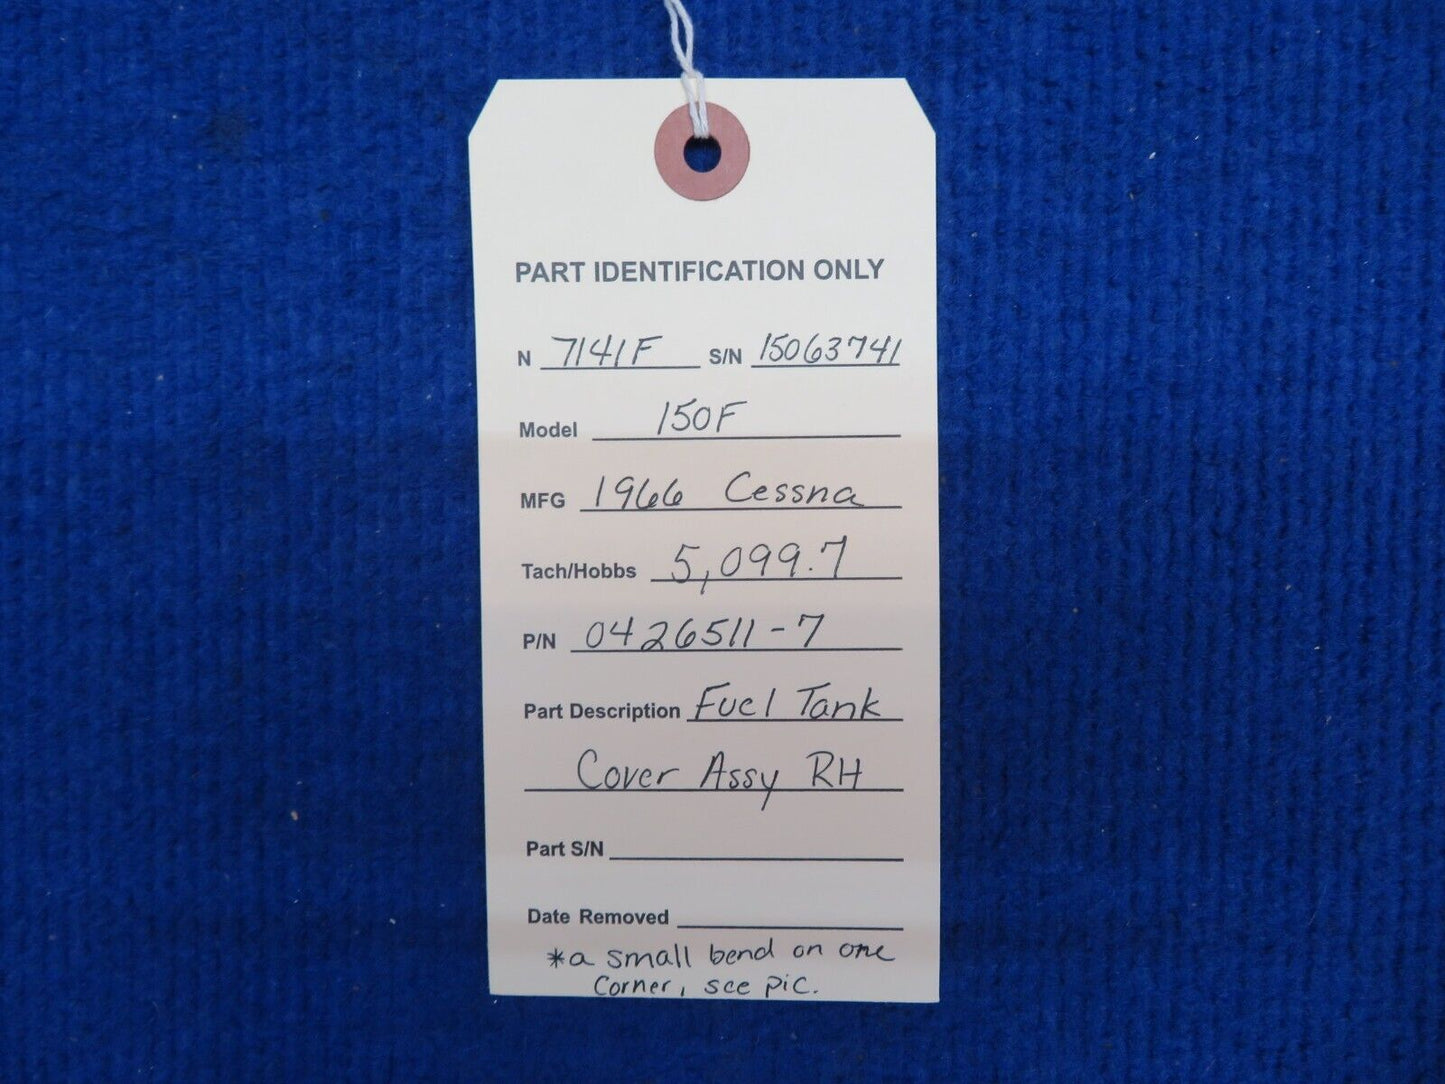 PART IDENTIFICATION ONLY
N 7141F S/N 15063741
Model 150F
MFG 1966 Cessna
Tach/Hobbs 5,099.7
P/N 0426511-7
Part Description Fuel Tank
Cover Assy RH
Part S/N
Date Removed
*a small bend on one
corner, see pic.